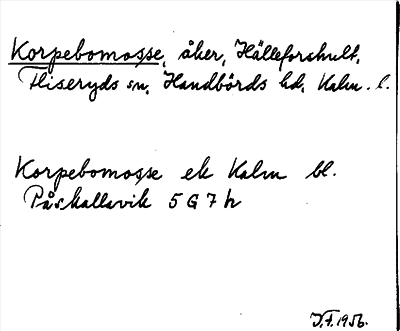 Korpebomosse, åker, Hälleforshult,
Fliseryds sn, Handbörds hd, Kalm. l.
Korpebomosse ek Kalm bl.
Påskallavik 5 G 7 h
1956.